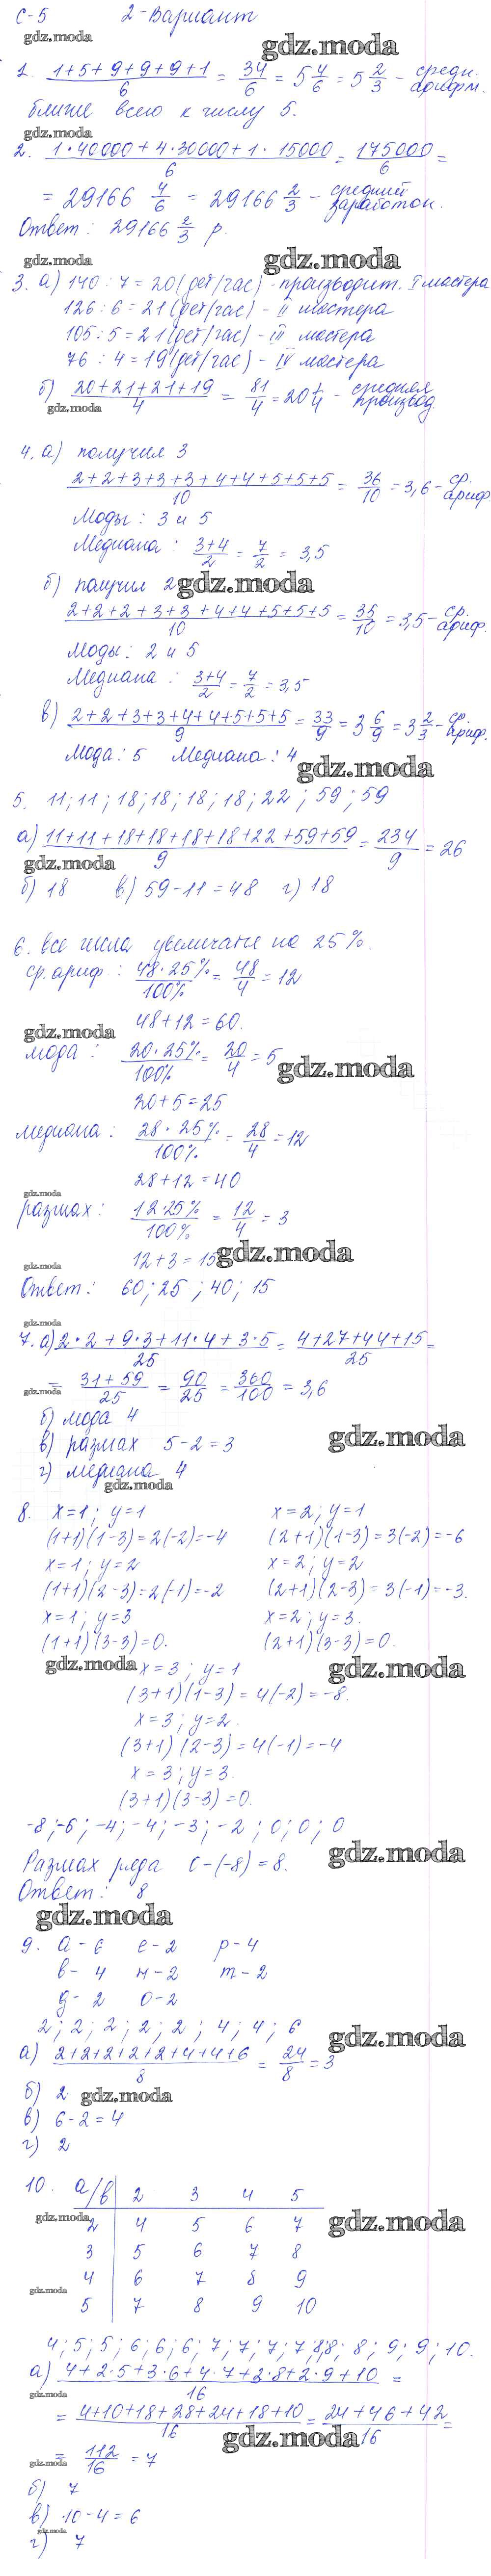 С-5 2-Вариант
gdz.moda
gdz.moda
1. (1+5+9+9+9+1)/6 = 34/6 = 5 4/6 = 5 2/3 - средн. арифм.
ближе всего к числу 5.
gdz.moda
2. (1·40000+4·30000+1·15000)/6 = 175000/6 =
= 29166 4/6 = 29166 2/3 - средний заработок.
Ответ: 29166 2/3 р.
gdz.moda
gdz.moda
3. а) 140:7=20(дет/час) - производит. I мастера
126:6=21(дет/час) - II мастера
105:5=21(дет/час) - III мастера
76:4=19(дет/час) - IV мастера
б) (20+21+21+19)/4 = 81/4 = 20 1/4 - средняя производ.
gdz.moda
4. а) получил 3
(2+2+3+3+3+4+4+5+5+5)/10 = 36/10 = 3,6 - ср. ариф
Моды: 3 и 5
Медиана: (3+4)/2 = 7/2 = 3,5
б) получил 2
gdz.moda
(2+2+2+3+3+4+4+5+5+5)/10 = 35/10 = 3,5 - ср. ариф.
Моды: 2 и 5
Медиана: (3+4)/2 = 7/2 = 3,5
в) (2+2+3+3+4+4+5+5+5)/9 = 33/9 = 3 6/9 = 3 2/3 - ср. ариф.
Мода: 5 Медиана: 4
gdz.moda
5. 11; 11; 18; 18; 18; 18; 22; 59; 59
а) (11+11+18+18+18+18+22+59+59)/9 = 234/9 = 26
gdz.moda
б) 18 в) 59-11=48 г) 18
6. все числа увеличате на 25%.
ср. ариф: 48·25%/100% = 48/4 = 12
gdz.moda
48+12=60.
мода: 20·25%/100% = 20/4 = 5
gdz.moda
20+5=25
медиана: 28·25%/100% = 28/4 = 12
28+12=40
gdz.moda
размах: 12·25%/100% = 12/4 = 3
gdz.moda
12+3=15
gdz.moda
Ответ: 60; 25; 40; 15
gdz.moda
7. а) (2·2+9·3+11·4+3·5)/25 = (4+27+44+15)/25 =
gdz.moda
= (31+59)/25 = 90/25 = 360/100 = 3,6
б) мода 4
gdz.moda
в) размах 5-2=3
г) медиана 4
gdz.moda
8. x=1; y=1 x=2; y=1
(1+1)(1-3)=2(-2)=-4 (2+1)(1-3)=3(-2)=-6
x=1; y=2 x=2; y=2
(1+1)(2-3)=2(-1)=-2 (2+1)(2-3)=3(-1)=-3.
x=1; y=3 x=2; y=3.
(1+1)(3-3)=0. (2+1)(3-3)=0.
gdz.moda
x=3; y=1
gdz.moda
(3+1)(1-3)=4(-2)=-8.
x=3; y=2.
(3+1)(2-3)=4(-1)=-4
x=3; y=3.
(3+1)(3-3)=0.
-8; -6; -4; -4; -3; -2; 0; 0; 0
gdz.moda
Размах ряда 0-(-8)=8.
Ответ: 8
gdz.moda
9. а-6 е-2 р-4
в-4 н-2 т-2
д-2 о-2
2; 2; 2; 2; 2; 4; 4; 6
gdz.moda
а) (2+2+2+2+2+4+4+6)/8 = 24/8 = 3
б) 2
gdz.moda
в) 6-2=4
г) 2
10. а/в 2 3 4 5
gdz.moda
2 4 5 6 7
gdz.moda
3 5 6 7 8
4 6 7 8 9
gdz.moda
5 7 8 9 10
4; 5; 5; 6; 6; 6; 7; 7; 7; 7; 8; 8; 8; 9; 9; 10.
а) (4+2·5+3·6+4·7+3·8+2·9+10)/16 =
gdz.moda
= (4+10+18+28+24+18+10)/16 = (24+46+42)/16 =
gdz.moda
= 112/16 = 7
gdz.moda
б) 7
в) 10-4=6
gdz.moda
г) 7